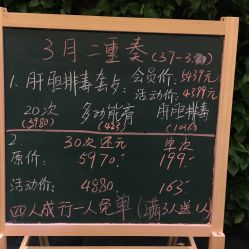 3月二重奏(37-3.
1. 肝胆排毒套卡 会员价:5499元
活动价:4399元
20次 多功能育 肝胆排毒
(3980) (423) (1036)
2 30次还元 单次
原价: 5970.- 199.-
活动价: 4880. 163.-
四人成行一人免单(满3人送1人)